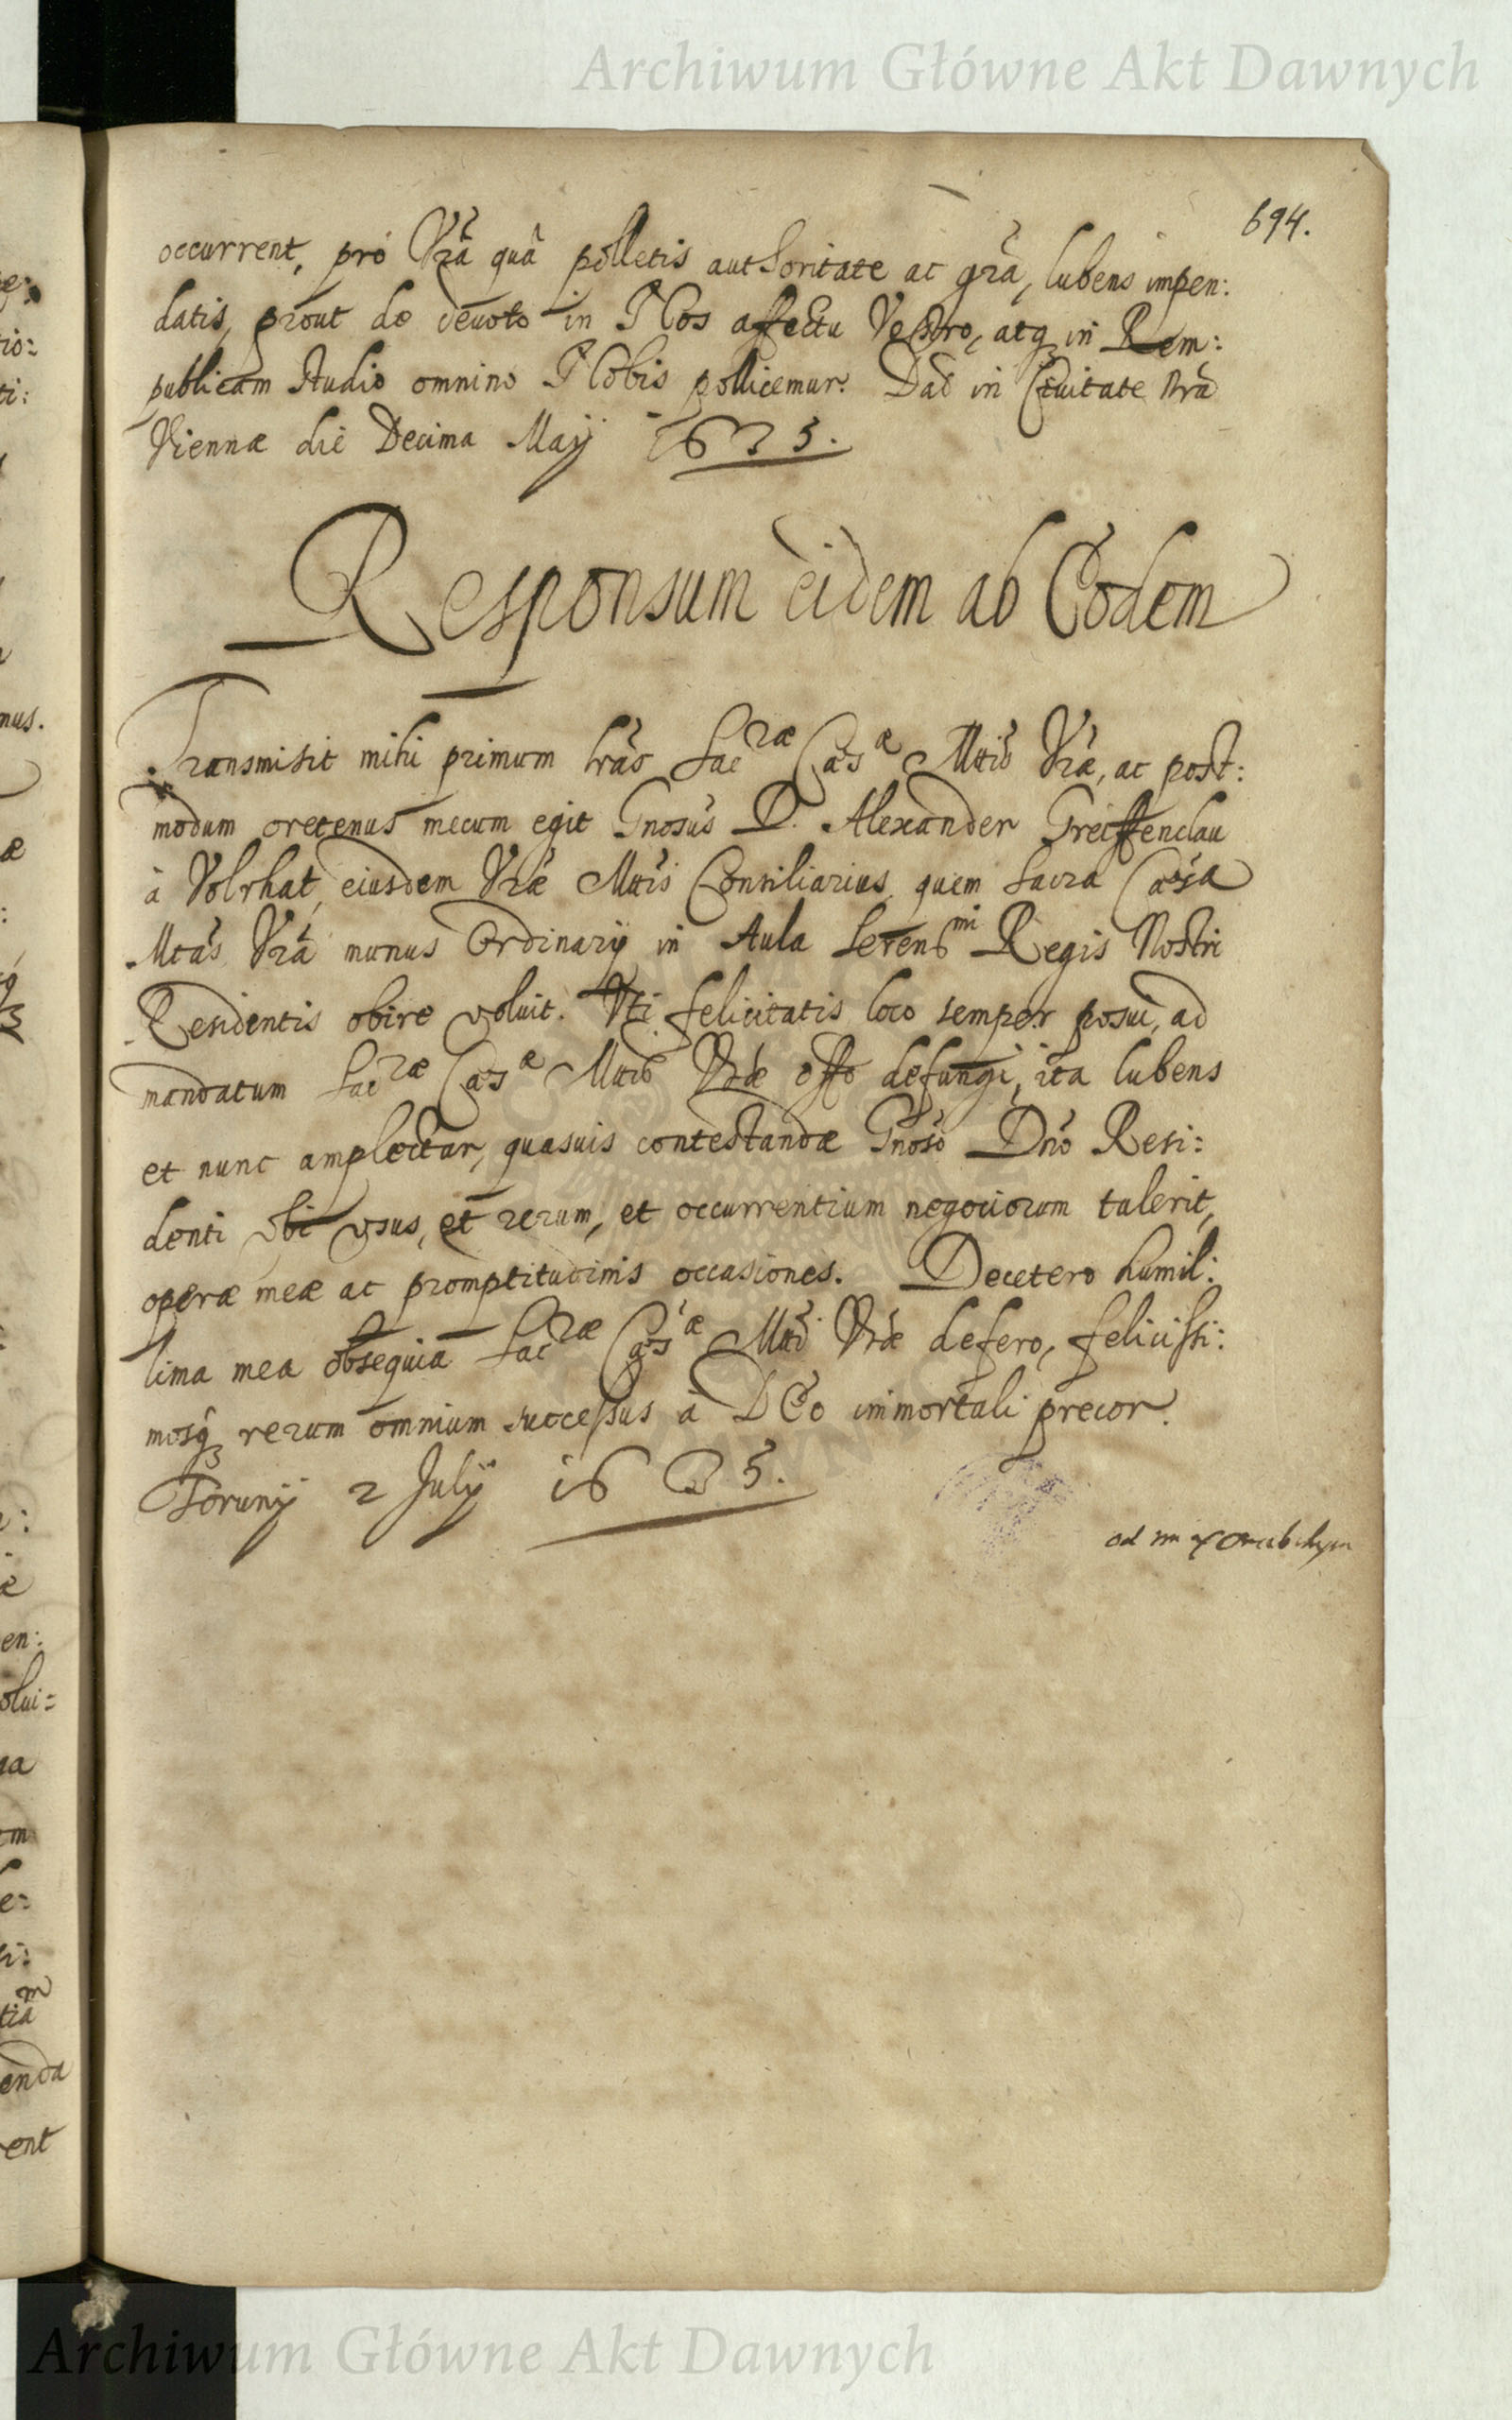 Archiwum Główne Akt Dawnych
694.
occurrent, pro Vrã quâ polletis authoritate ac grã, lubens impen:
datis, prout de devoto in Nos affectu Vestro, atq in Rem:
publicam studio omnino Nobis pollicemur. Dat in Civitate Nrã
Viennæ die Decima Maÿ 1635.
Responsum eidem ab Eodem
Transmisit mihi primum lrãs Sacræ Cæsæ Mttis Vræ, ac post:
modum oretenus mecum egit Gnosus D. Alexander Greiffenclau
à Volrhat, eiusdem Vræ Mttis Consiliarius, quem Sacra Cæsa
Mtas Vrã munus Ordinarÿ in Aula Serenmi Regis Nostri
Residentis obire voluit. Vti felicitatis loco semper posui, ad
mandatum Sacræ Cæsæ Mttis Vræ offo defungi, ita lubens
et nunc amplectar, quasuis contestandæ Gnoso Dno Resi:
denti vbi vsus, et rerum, et occurrentium negotiorum tulerit,
operæ meæ ac promptitudinis occasiones. Decetero humil:
lima mea obsequia Sacræ Cæsæ Mtti Vræ defero, felicissi:
mosq rerum omnium successus à DEo immortali precor.
Torunÿ 2 Julÿ 1635.
Archiwum Główne Akt Dawnych